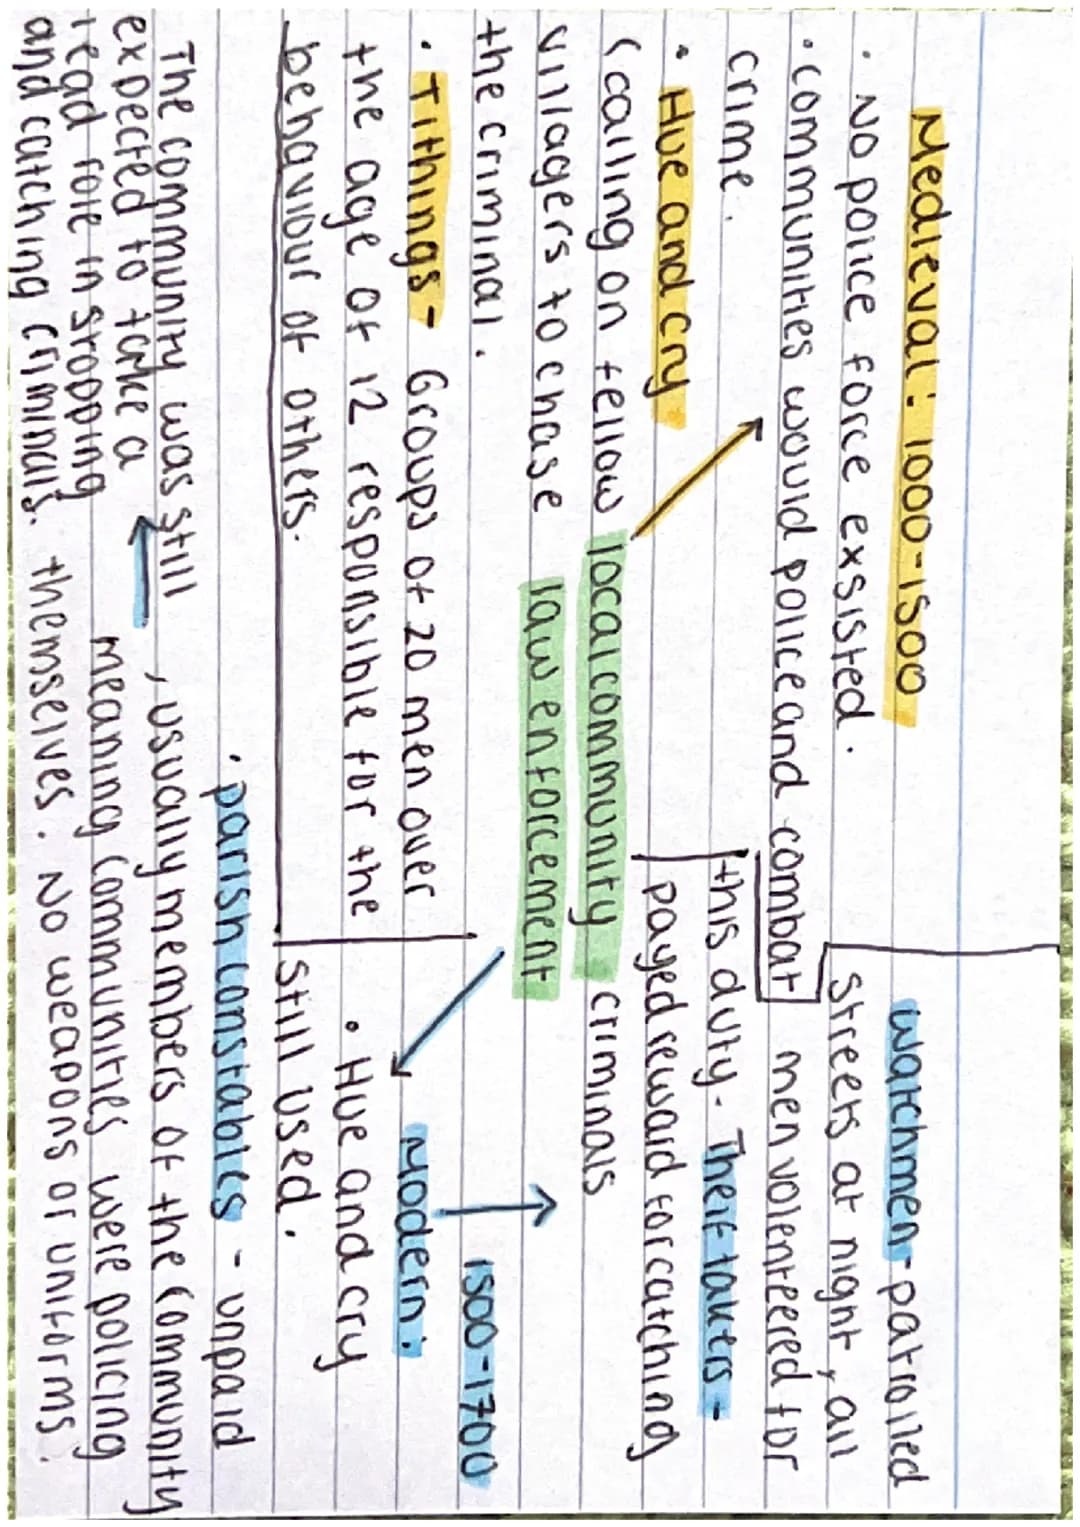 Medieval: 1000-1500
· No police force exsisted.
· communities would police and combat
crime.
· Hue and cry.
(calling on fellow
villagers to chase
the criminal.
· Tithings- Groups of 20 men over
the age of 12 responsible for the
behaviour of others.
local community
law enforcement
watchmen-patrolled
streets at night, all
men volenteered for
this duty. Theif takers -
payed reward for catching
criminals
1500-1700
Modern:
· Hue and cry
still used.
· parish constables - unpaid
, usually members of the community
meaning communities were policing
themselves. No weapons or uniforms.
The community was still
expected to take a
lead role in stopping
and catching criminals.